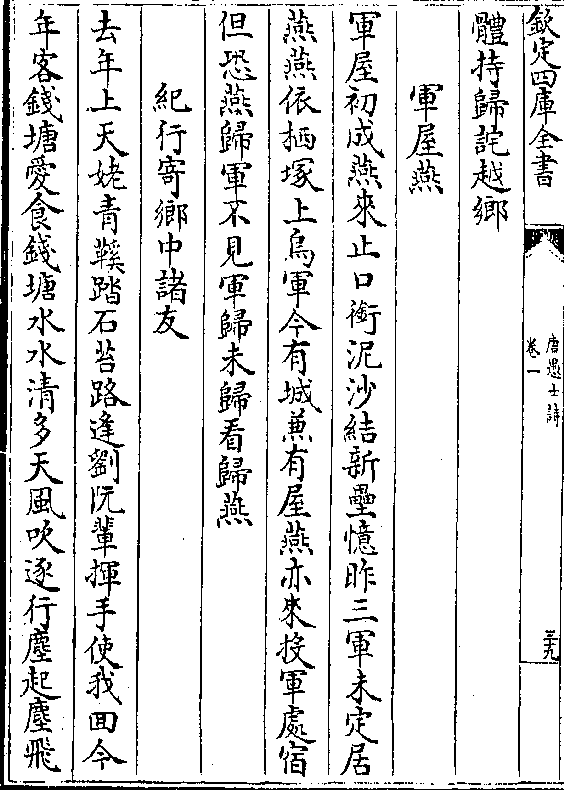 欽定四庫全書
唐愚士詩
卷一
三九
體持歸詫越鄉
軍屋燕
軍屋初成燕來止口銜泥沙結新壘憶昨三軍未定居
燕燕依栖塚上烏軍今有城兼有屋燕亦來投軍處宿
但恐燕歸軍不見軍歸未歸看歸燕
紀行寄鄉中諸友
去年上天姥青鞵踏石苔路逢劉阮輩揮手使我回今
年客錢塘愛食錢塘水水清多天風吹逐行塵起塵飛